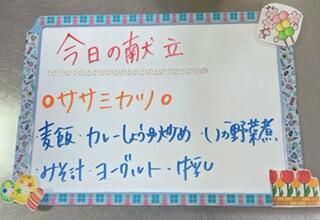 今日の献立
○ササミカツ○
麦飯・カレーしょうゆ炒め・いつ野菜煮
・みそ汁・ヨーグルト・牛乳